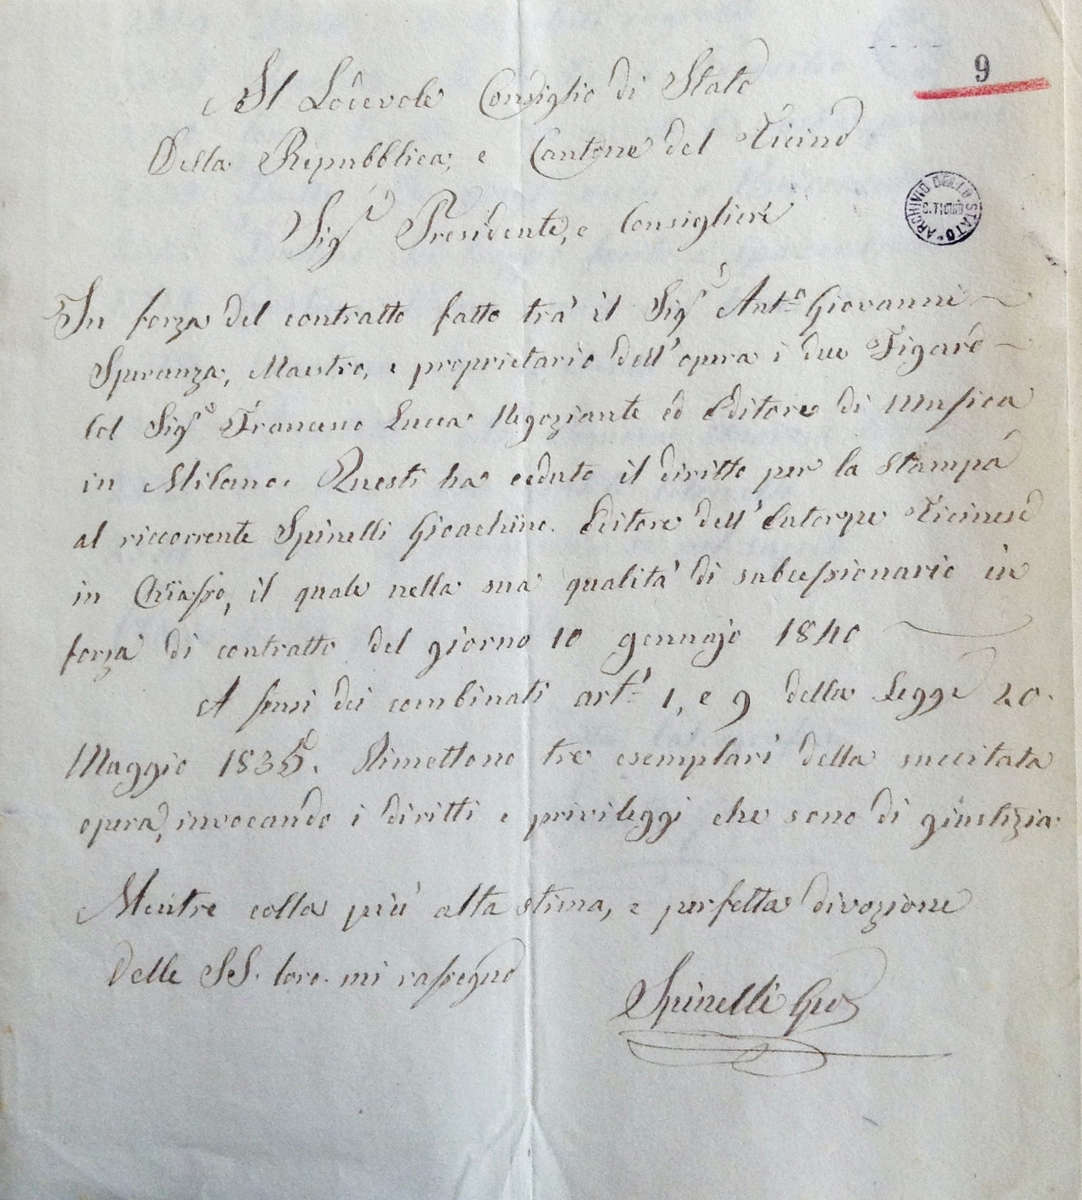 9
Al Lodevole Consiglio di Stato
Della Repubblica, e Cantone del Ticino
ARCHIVIO DELLO STATO
C. TICINO
Sigri Presidente, e Consiglieri
In forza del contratto fatto trà il Sigr Anto Giovanni
Speranza, Maestro, e proprietario dell'opera i due Figaro
col Sigr Francesco Lucca Negoziante ed Editore di Musica
in Milano. Questi ha ceduto il diritto per la stampa
al riccorrente Spinelli Gioachino. Editore dell'Euterpe Ticinese
in Chiasso, il quale nella sua qualità di subcessionario in
forza di contratto del giorno 10 gennajo 1840
A sensi dei combinati arti 1, e 9 della Legge 20.
Maggio 1835. Rimettono tre esemplari della succitata
opera, invocando i diritti e privileggi che sono di giustizia.
Mentre colla più alta stima, e perfetta divozione
delle SS. loro. mi rassegno
Spinelli Gio